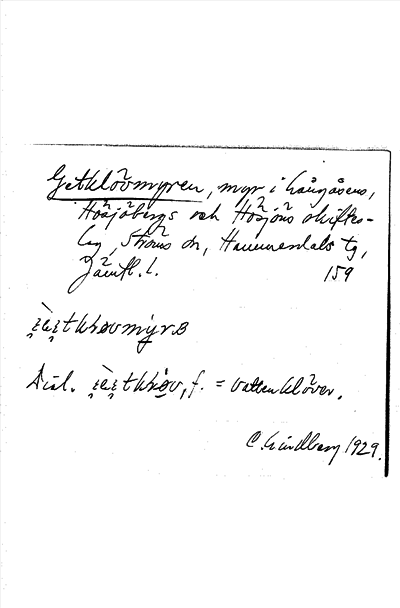 Getklövmyren, myr i Långåsens,
Håsjöbergs och Håsjöns skiftes-
lag, Ströms sn, Hammerdals tg,
Jämtl. l. 159
Dial. f. = vattenklöver.
C. Lindberg 1929.